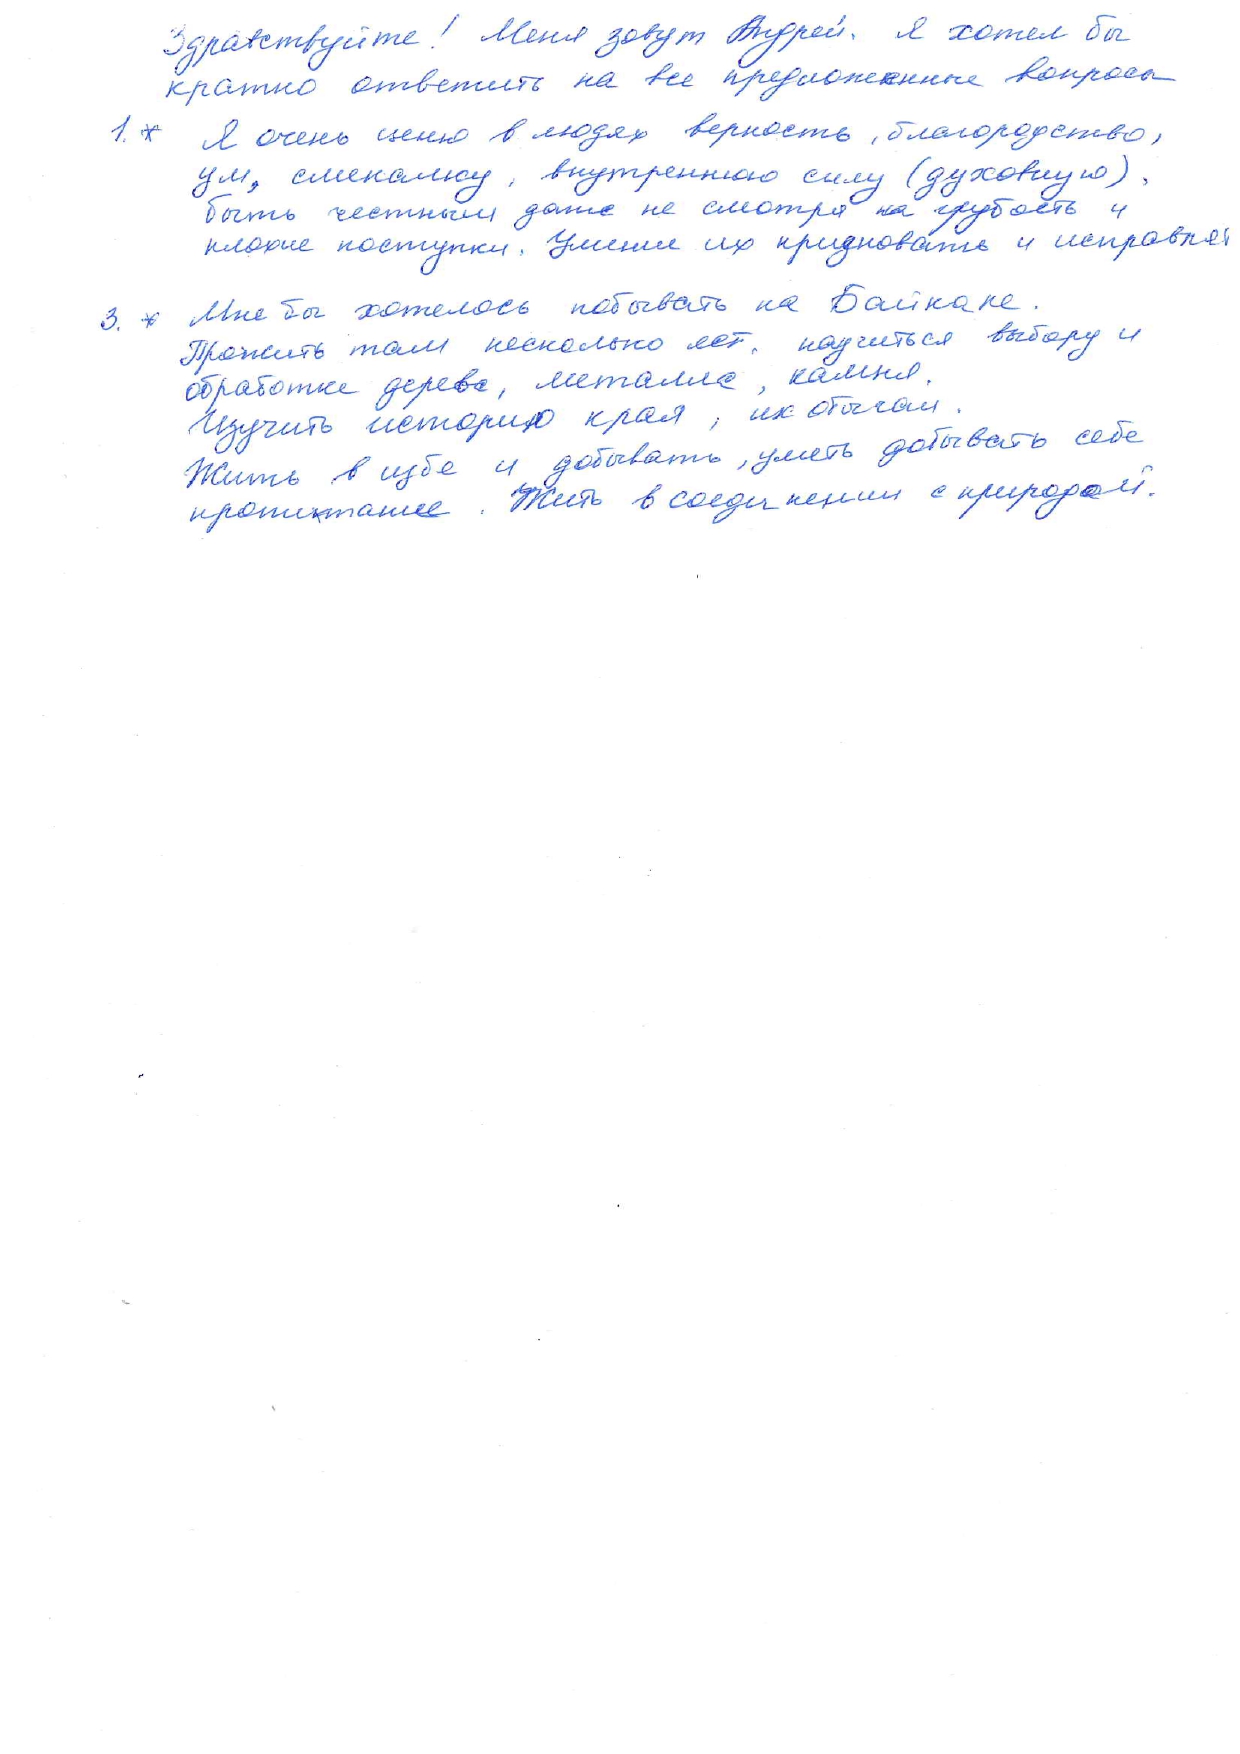 Здравствуйте! Меня зовут Андрей. Я хотел бы
кратко ответить на все предложенные вопросы
1. * Я очень ценю в людях верность, благородство,
ум, смекалку, внутреннюю силу (духовную),
быть честным даже не смотря на грубость и
плохие поступки. Умение их признавать и исправлят
3. * Мне бы хотелось побывать на Байкале.
Прожить там несколько лет, научиться выбору и
обработке дерева, металла, камня.
Изучить историю края, их обычаи.
Жить в избе и добывать, уметь добывать себе
пропитание. Жить в соединении с природой.